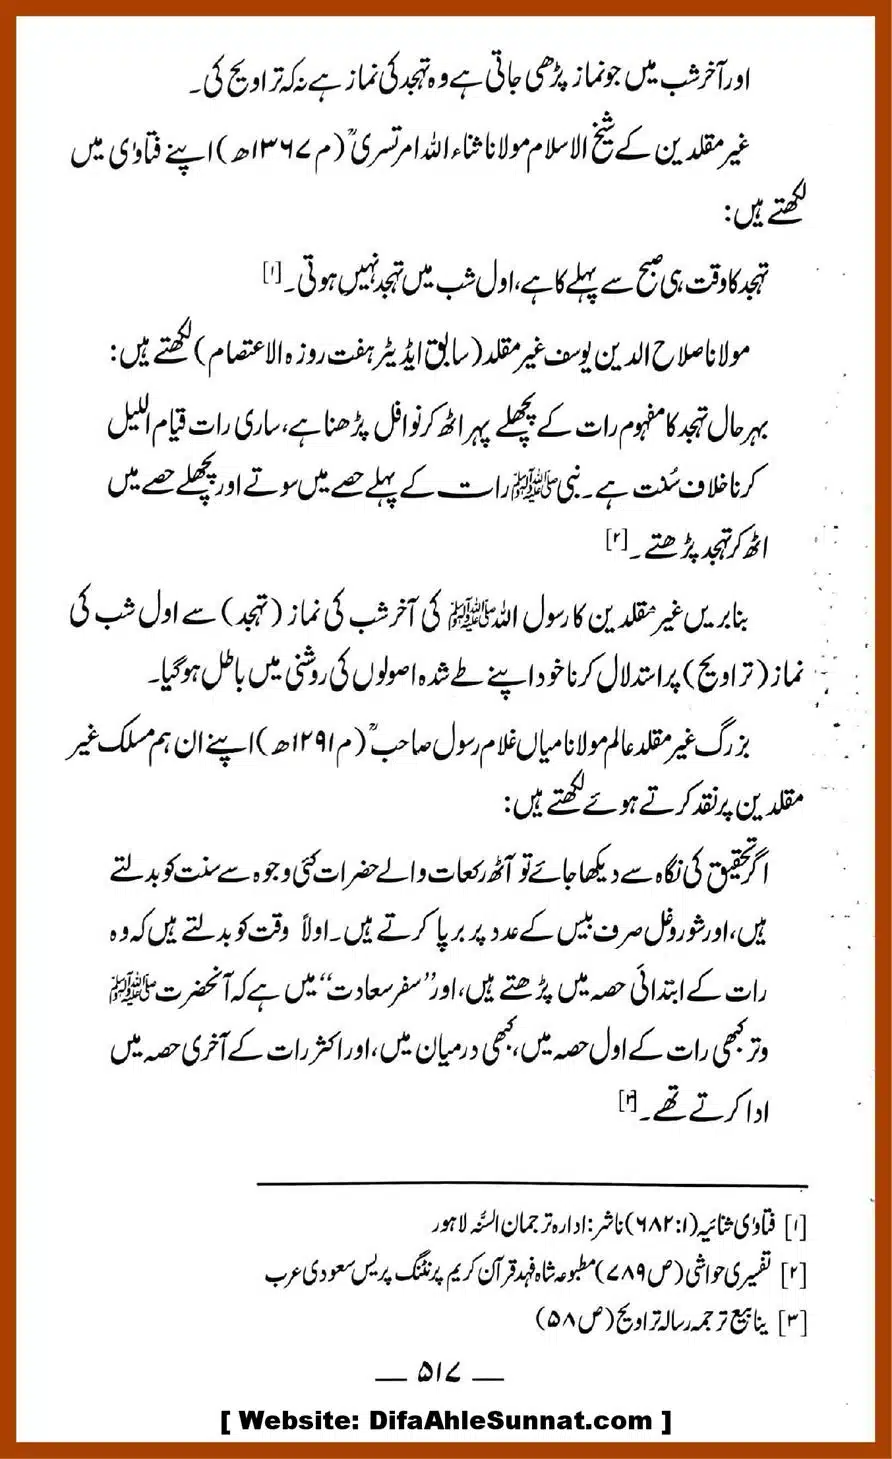 اور آخر شب میں جو نماز پڑھی جاتی ہے وہ تہجد کی نماز ہے نہ کہ تراویح کی۔
غیر مقلدین کے شیخ الاسلام مولانا ثناء اللہ امرتسریؒ (م ۱۳۶۷ھ) اپنے فتاوٰی میں
لکھتے ہیں:
تہجد کا وقت ہی صبح سے پہلے کا ہے، اول شب میں تہجد نہیں ہوتی۔[۱]
مولانا صلاح الدین یوسف غیر مقلد (سابق ایڈیٹر ہفت روزہ الاعتصام) لکھتے ہیں:
بہرحال تہجد کا مفہوم رات کے پچھلے پہر اٹھ کر نوافل پڑھنا ہے، ساری رات قیام اللیل
کرنا خلاف سُنت ہے۔ نبی ﷺ رات کے پہلے حصے میں سوتے اور پچھلے حصے میں
اٹھ کر تہجد پڑھتے۔[۲]
بنا بریں غیر مقلدین کا رسول اللہ ﷺ کی آخر شب کی نماز (تہجد) سے اول شب کی
نماز (تراویح) پر استدلال کرنا خود اپنے طے شدہ اصولوں کی روشنی میں باطل ہو گیا۔
بزرگ غیر مقلد عالم مولانا میاں غلام رسول صاحبؒ (م ۱۲۹۱ھ) اپنے ان ہم مسلک غیر
مقلدین پر نقد کرتے ہوئے لکھتے ہیں:
اگر تحقیق کی نگاہ سے دیکھا جائے تو آٹھ رکعات والے حضرات کئی وجوہ سے سنت کو بدلتے
ہیں، اور شور و غل صرف بیس کے عدد پر برپا کرتے ہیں۔ اولاً وقت کو بدلتے ہیں کہ وہ
رات کے ابتدائی حصہ میں پڑھتے ہیں، اور ”سفر سعادت“ میں ہے کہ آنحضرت ﷺ
وتر کبھی رات کے اول حصہ میں، کبھی درمیان میں، اور اکثر رات کے آخری حصہ میں
ادا کرتے تھے۔[۳]
[۱] فتاوٰی ثنائیہ (۱:۶۸۲) ناشر: ادارہ ترجمان السُّنہ لاہور
[۲] تفسیری حواشی (ص ۷۸۹) مطبوعہ شاہ فہد قرآن کریم پرنٹنگ پریس سعودی عرب
[۳] ینابیع ترجمہ رسالہ تراویح (ص ۵۸)
— ۵۱۷ —
[ Website: DifaAhleSunnat.com ]